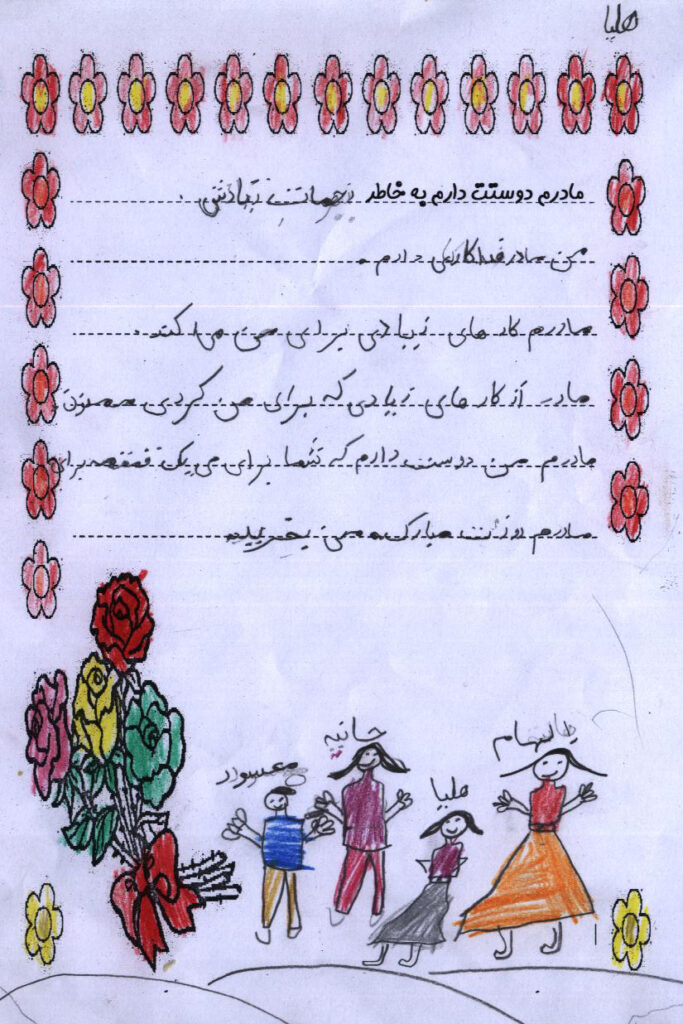 هلیا
مادرم دوستت دارم به خاطر زحمات زیادش .
من مادر فداکاری دارم .
مادرم کار های زیادی برای من می کند .
مادر از کار های زیادی که برای من کردی ممنون
مادرم من دوست دارم که تنها برای من یک
مادرم روزت مبارک من
مامان الهام
حانیه
هلیا